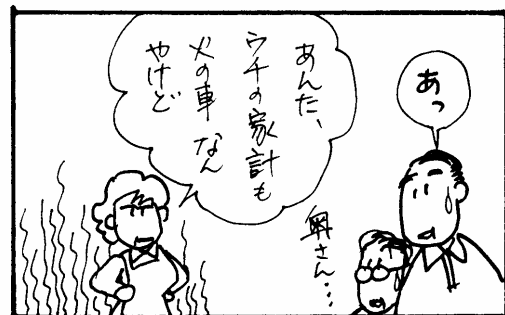 あっ
あんた、
ウチの家計も
火の車なん
やけど
奥さん・・・